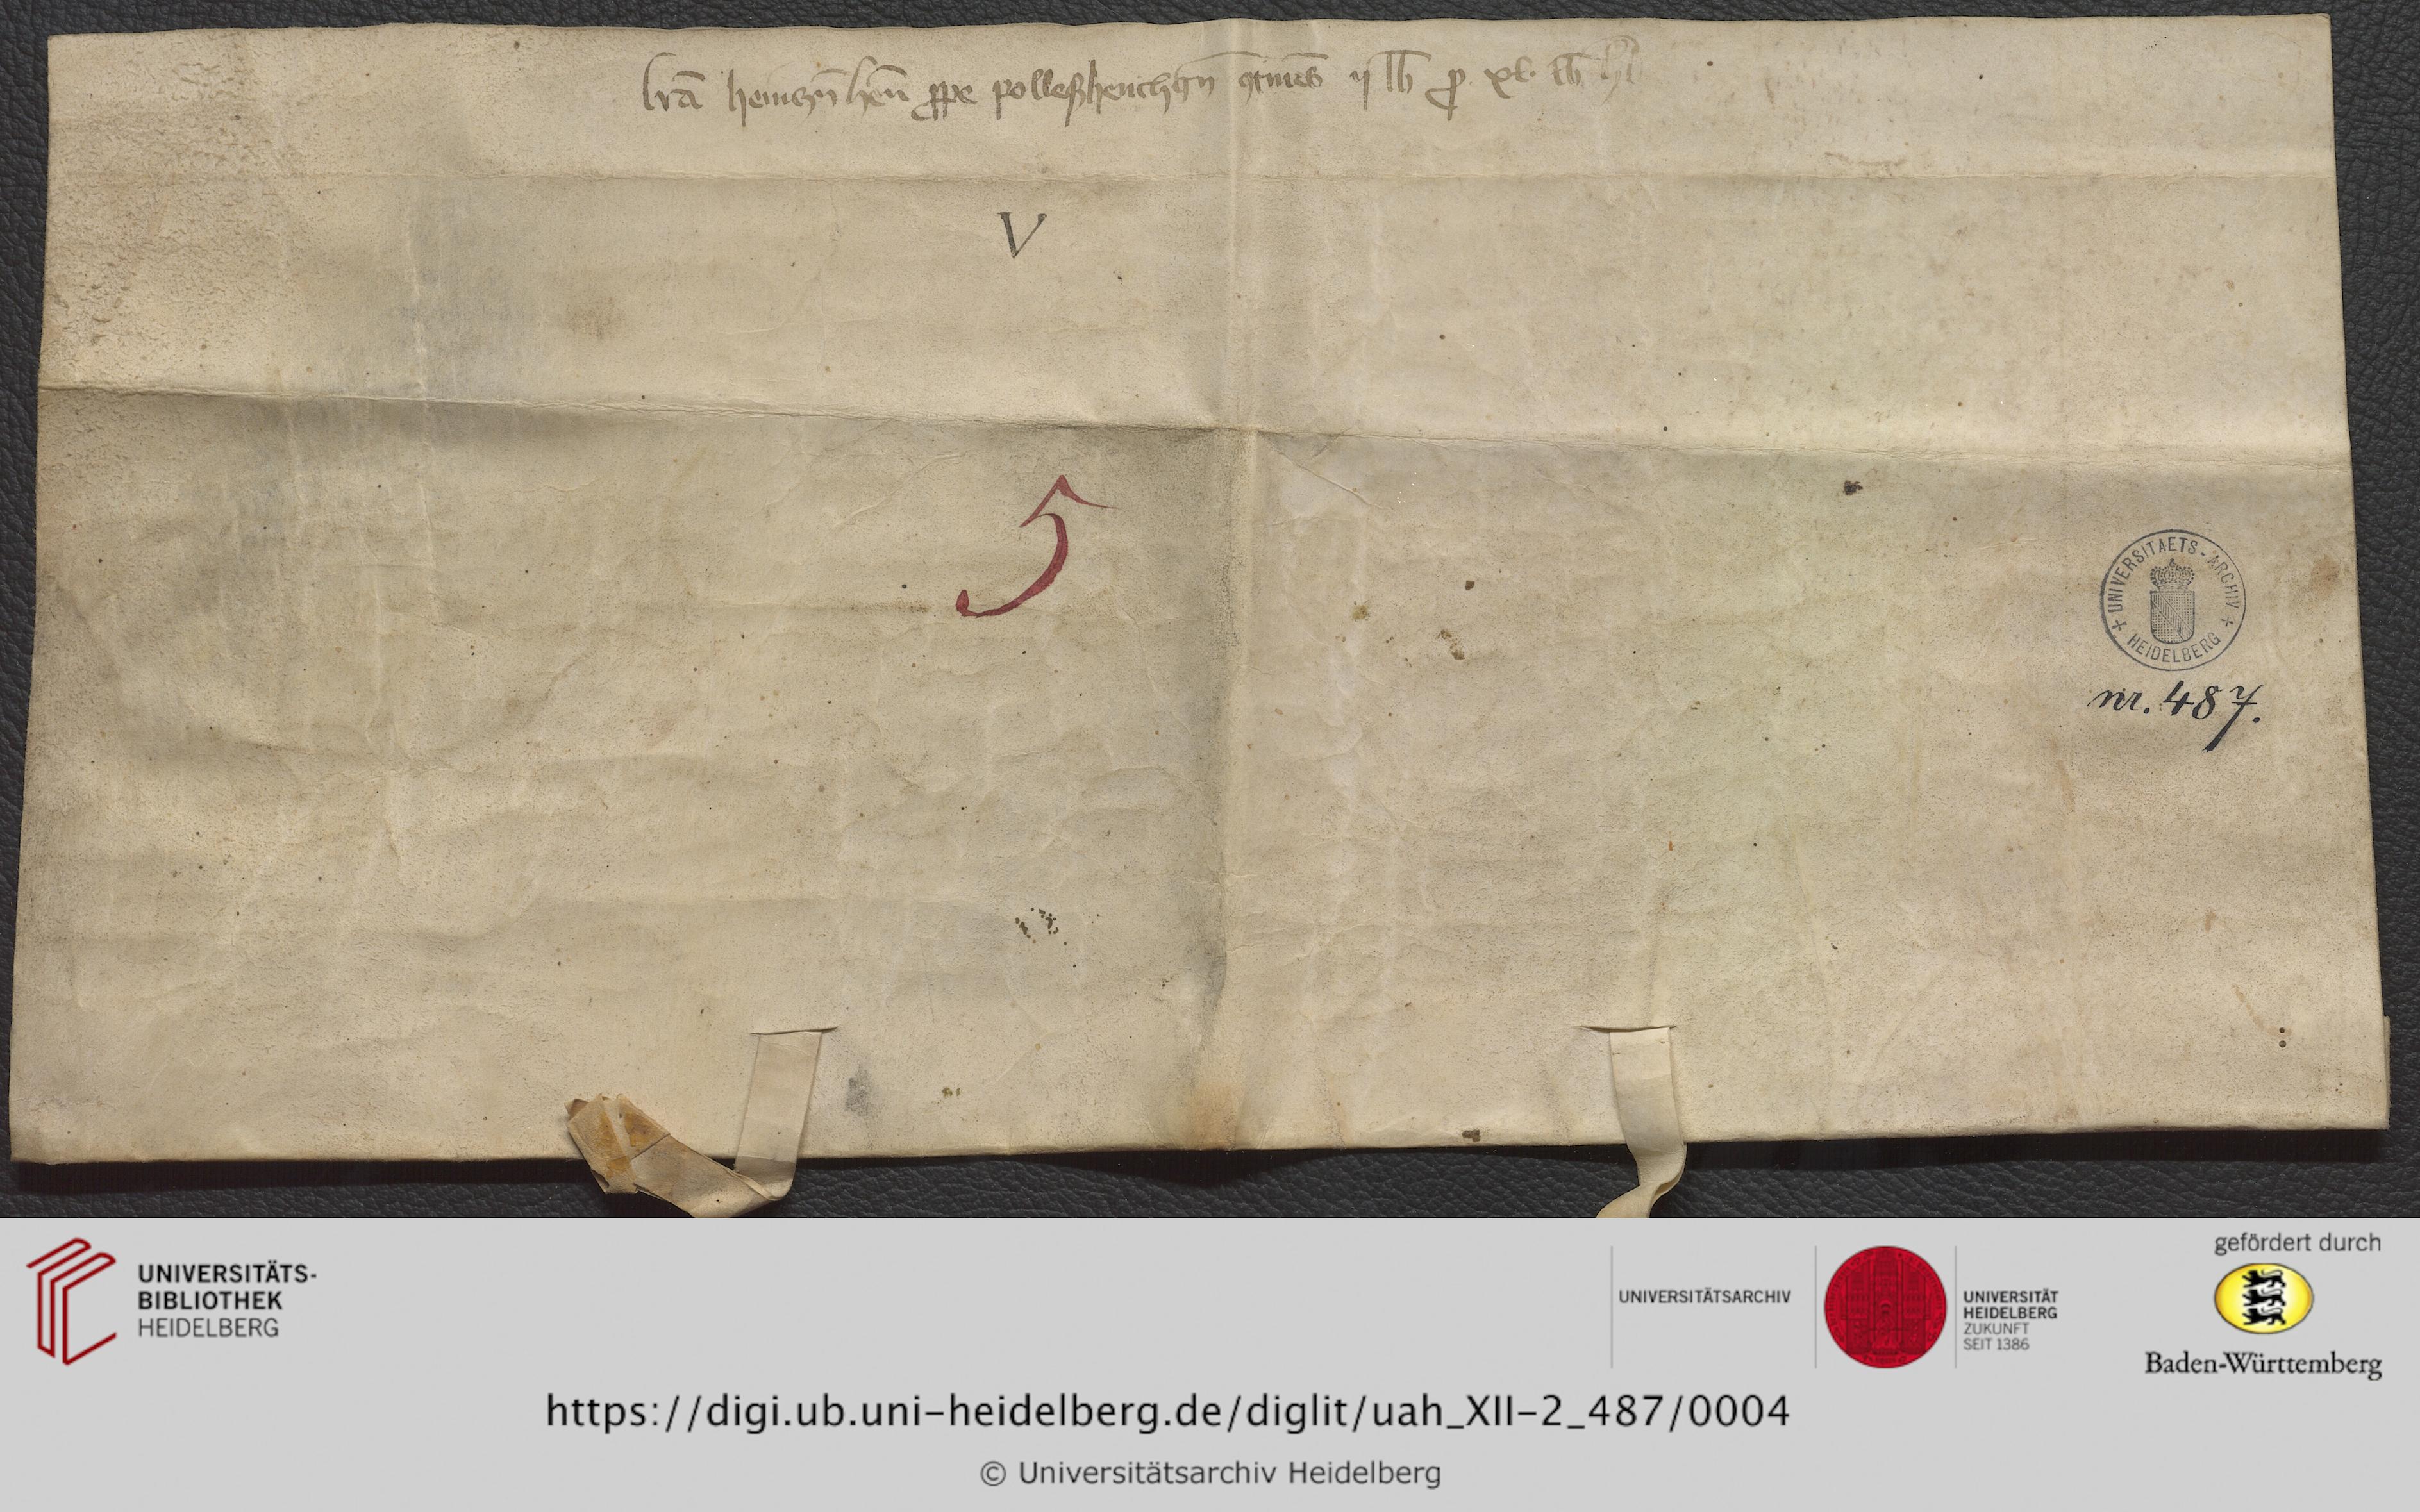 lrā heinczn hen̄ prope polleßhenchin ɔtines ij lb pro xl lb
V
5
+ UNIVERSITAETS-ARCHIV + HEIDELBERG
nr. 487.
UNIVERSITÄTS-
BIBLIOTHEK
HEIDELBERG
UNIVERSITÄTSARCHIV
UNIVERSITÄT
HEIDELBERG
ZUKUNFT
SEIT 1386
gefördert durch
Baden-Württemberg
https://digi.ub.uni-heidelberg.de/diglit/uah_XII-2_487/0004
© Universitätsarchiv Heidelberg